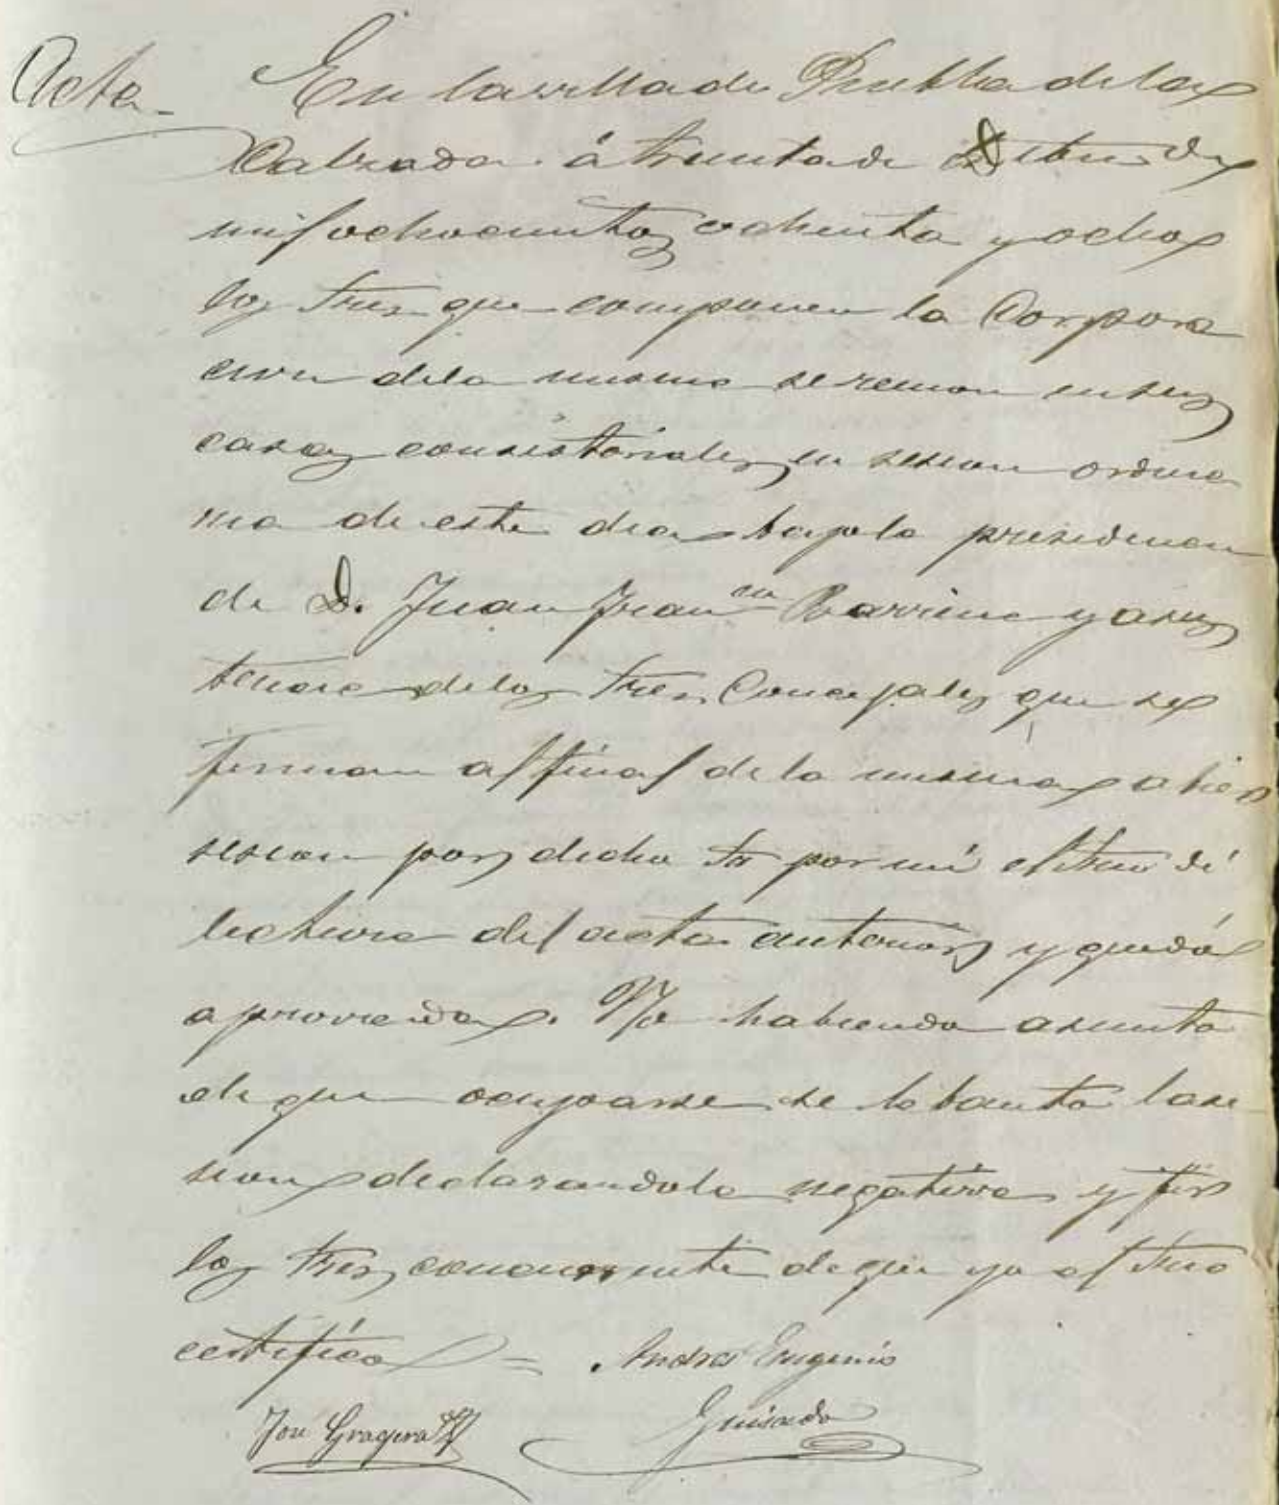 Acta_ En la villa de Puebla de la
Calzada á treinta de de
mil ochocientos ochenta y ocho
los Sres que componen la Corpora
cion dela misma se reunen en sus
casas consistoriales en sesion ordina
ria de este dia bajo la presidencia
de D. Juan Fran^co Barrena y a sis
tencia delos Sres Concejales que se
firman al final de la misma abier
sesion por dicho Sr por mi el Srio dí
lectura del acta anterior y quedó
aprovada. No habiendo asunto
de que ocuparse se lebanta la se
sion declarandola negativa y fir
los Sres concurrente de que yo el Srio
certifico = Andres Eugenio
José Gragera Guisado